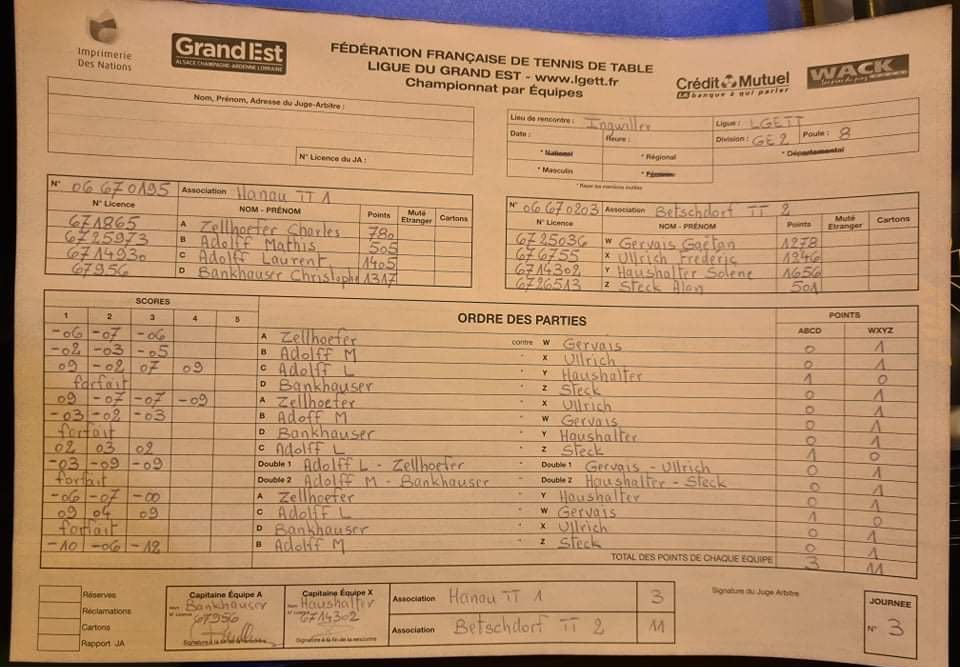 Imprimerie
Des Nations
GrandEst
ALSACE CHAMPAGNE-ARDENNE LORRAINE
FÉDÉRATION FRANÇAISE DE TENNIS DE TABLE
LIGUE DU GRAND EST - www.lgett.fr
Championnat par Équipes
Crédit Mutuel
LA banque à qui parler
WACK
Nom, Prénom, Adresse du Juge-Arbitre :
N° Licence du JA :
Lieu de rencontre : Ingwiller Ligue : LGETT
Date : Heure : Division : GE2 Poule : 8
* National * Régional * Départemental
* Masculin * Féminin
* Rayer les mentions inutiles
N° 06670195 Association Hanau TT 1
N° Licence NOM - PRÉNOM Points Muté Etranger Cartons
671865 A Zellhoefer Charles 780
6725973 B Adolff Mathis 505
6714930 C Adolff Laurent 1405
67956 D Bankhauser Christophe 1317
N° 06670203 Association Betschdorf TT 2
N° Licence NOM - PRÉNOM Points Muté Etranger Cartons
6725036 W Gervais Gaëtan 1278
676755 X Ullrich Frederic 1346
6714302 Y Haushalter Solene 1656
6726513 Z Steck Alan 501
SCORES ORDRE DES PARTIES POINTS
1 2 3 4 5 ABCD WXYZ
-06 -07 -06 A Zellhoefer contre W Gervais 0 1
-02 -03 -05 B Adolff M " X Ullrich 0 1
09 -02 07 09 C Adolff L " Y Haushalter 1 0
forfait D Bankhauser " Z Steck 0 1
09 -07 -07 -09 A Zellhoefer " X Ullrich 0 1
-03 -02 -03 B Adoff M " W Gervais 0 1
forfait D Bankhauser " Y Haushalter 0 1
02 03 02 C Adolff L " Z Steck 1 0
-03 -09 -09 Double 1 Adolff L - Zellhoefer " Double 1 Gervais - Ullrich 0 1
forfait Double 2 Adolff M - Bankhauser " Double 2 Haushalter - Steck 0 1
-06 -07 -00 A Zellhoefer " Y Haushalter 0 1
09 04 09 C Adolff L " W Gervais 1 0
forfait D Bankhauser " X Ullrich 0 1
-10 -06 -12 B Adolff M " Z Steck 0 1
TOTAL DES POINTS DE CHAQUE ÉQUIPE 3 11
Réserves
Réclamations
Cartons
Rapport JA
Capitaine Équipe A
Nom Bankhauser
N° Licence 67956
Signature à la fin de la rencontre
Capitaine Équipe X
Nom Haushalter
N° Licence 6714302
Signature à la fin de la rencontre
Association Hanau TT 1 3
Association Betschdorf TT 2 11
Signature du Juge Arbitre
JOURNEE
N° 3